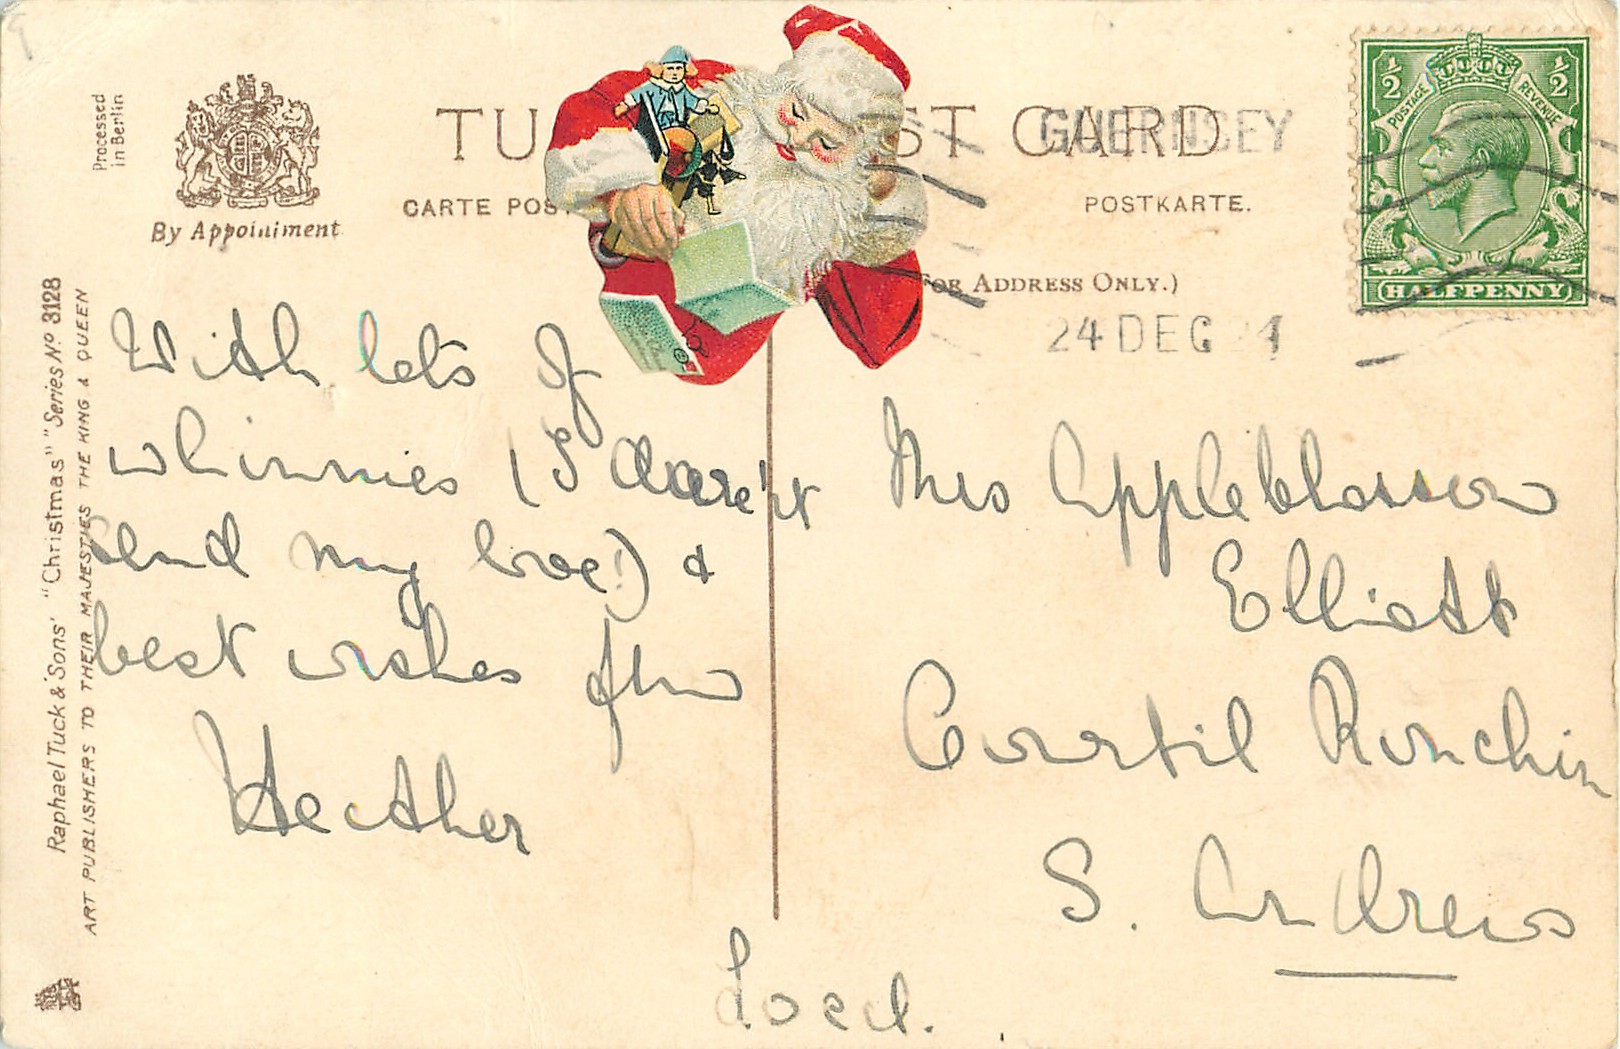 Processed
in Berlin
By Appointment
TU ST CARD
CARTE POS
POSTKARTE.
OR ADDRESS ONLY.)
GUERNCEY
24 DEC 21
POSTAGE REVENUE
½ ½
HALFPENNY
Raphael Tuck & Sons' "Christmas" "Series No 3128
ART PUBLISHERS TO THEIR MAJESTIES THE KING & QUEEN
With lots of
whinnies (I daren't
send my love!) &
best wishes from
Heather
Mrs Appleblossom
Elliott
Courtil Ronchin
S. Andrews
Local.